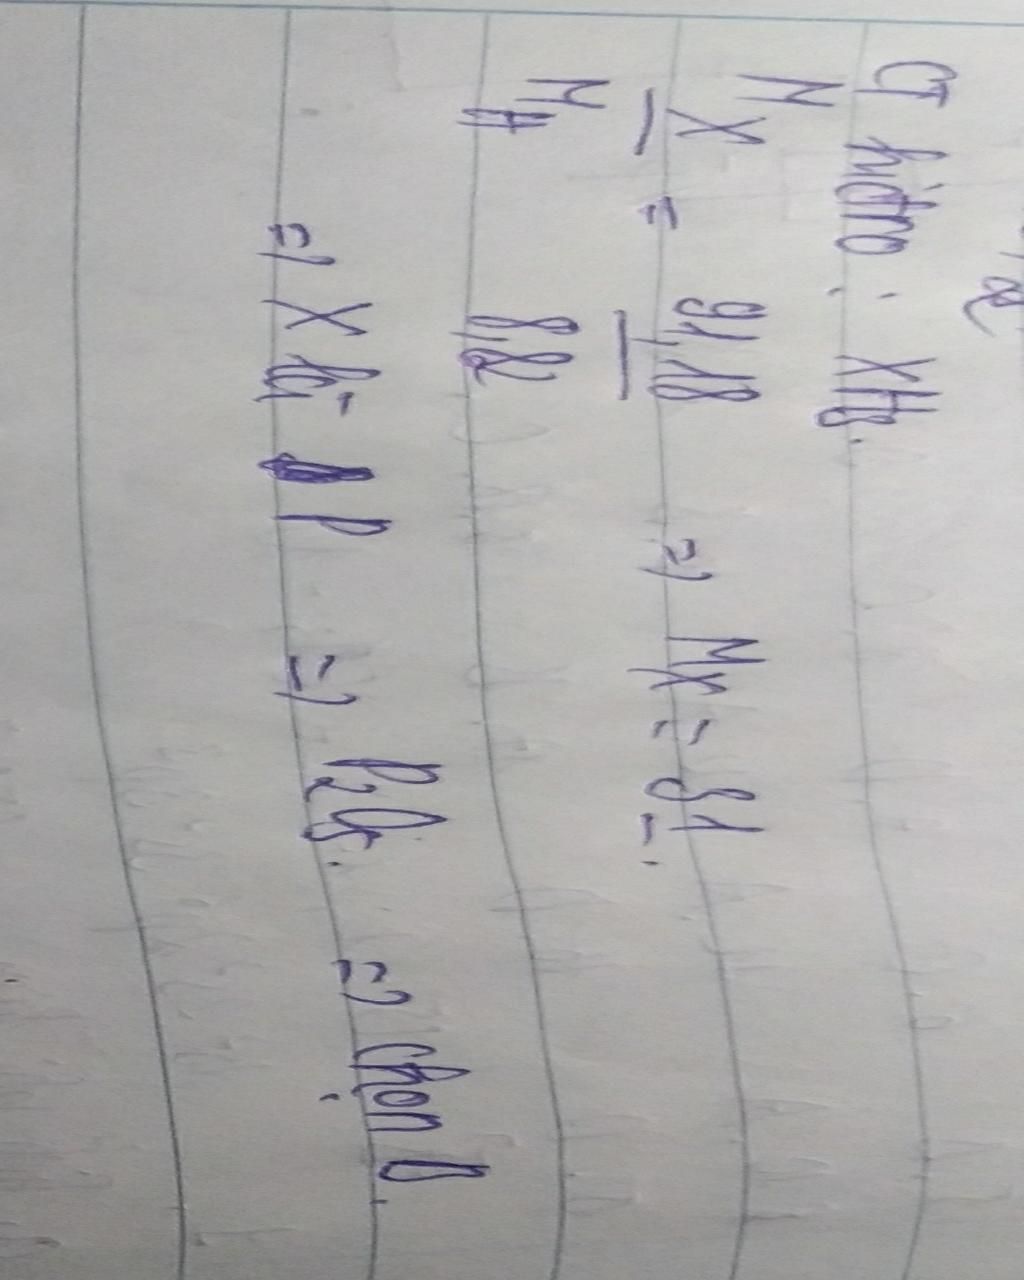 CT hidro : XH3.
M X / M H = 91,18 / 8,82 => MX = 31.
=> X là P => P2O5. => chọn